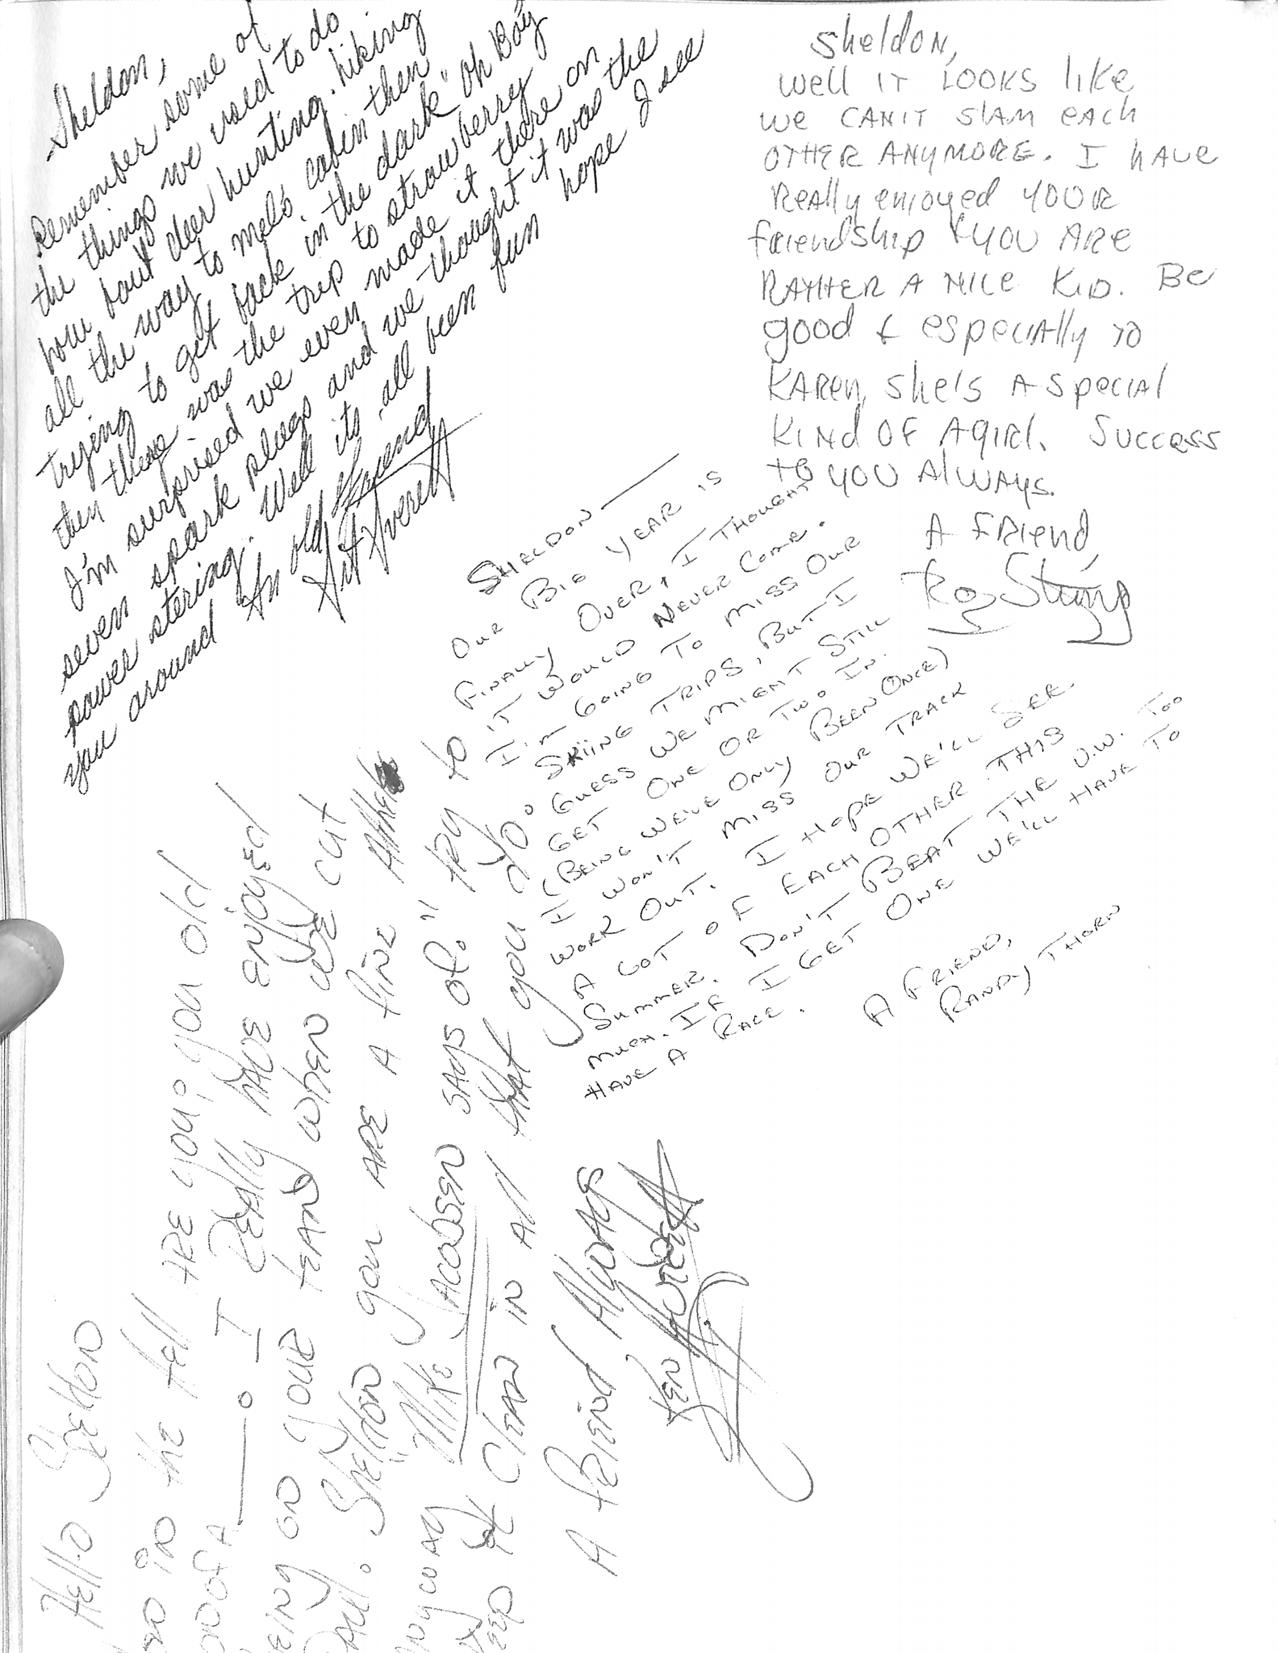 Sheldon,
Remember some of
the things we used to do
how bout deer hunting. hiking
all the way to mel's cabin then
trying to get back in the dark "oh Boy
they there was the trip to strawberry
I'm surprised we even made it there on
seven spark plugs and we thought it was the
power stering. Well its all been fun hope I see
you around
An old friend
Art Averett
Sheldon,
Well IT LOOKS like
we CAN'T SLAM each
OTHER ANYMORE. I HAVE
Really enjoyed YOUR
friendship & YOU ARE
RATHER A NICE KID. Be
good & especially TO
KAREN, she's A special
KIND OF A girl. Success
to YOU AlWAYS.
A friend,
SHELDON —
OUR BIG YEAR IS
FINALLY OVER, I THOUGHT
IT WOULD NEVER COME.
I'm GOING TO MISS OUR
SKIING TRIPS, BUT I
GUESS WE MIGHT STILL
GET ONE OR TWO IN.
(BEING WE'VE ONLY BEEN ONCE)
I WON'T MISS OUR TRACK
WORK OUT. I HOPE WE'LL SEE
A LOT OF EACH OTHER THIS
SUMMER. DON'T BEAT THE U.W. TOO
MUCH. IF I GET ONE WE'LL HAVE TO
HAVE A RACE.
A FRIEND,
RANDY THORN
Hello Sheldon
in the fell are you; you old
of A ___. I REAlly HAVE ENjoyed
on your TEAM when we cut
. Sheldon you ARE A fine Athelet
"Mike JACOBSEN says of." try to
it ClEAN in All that you do.
A friend Always
KEN